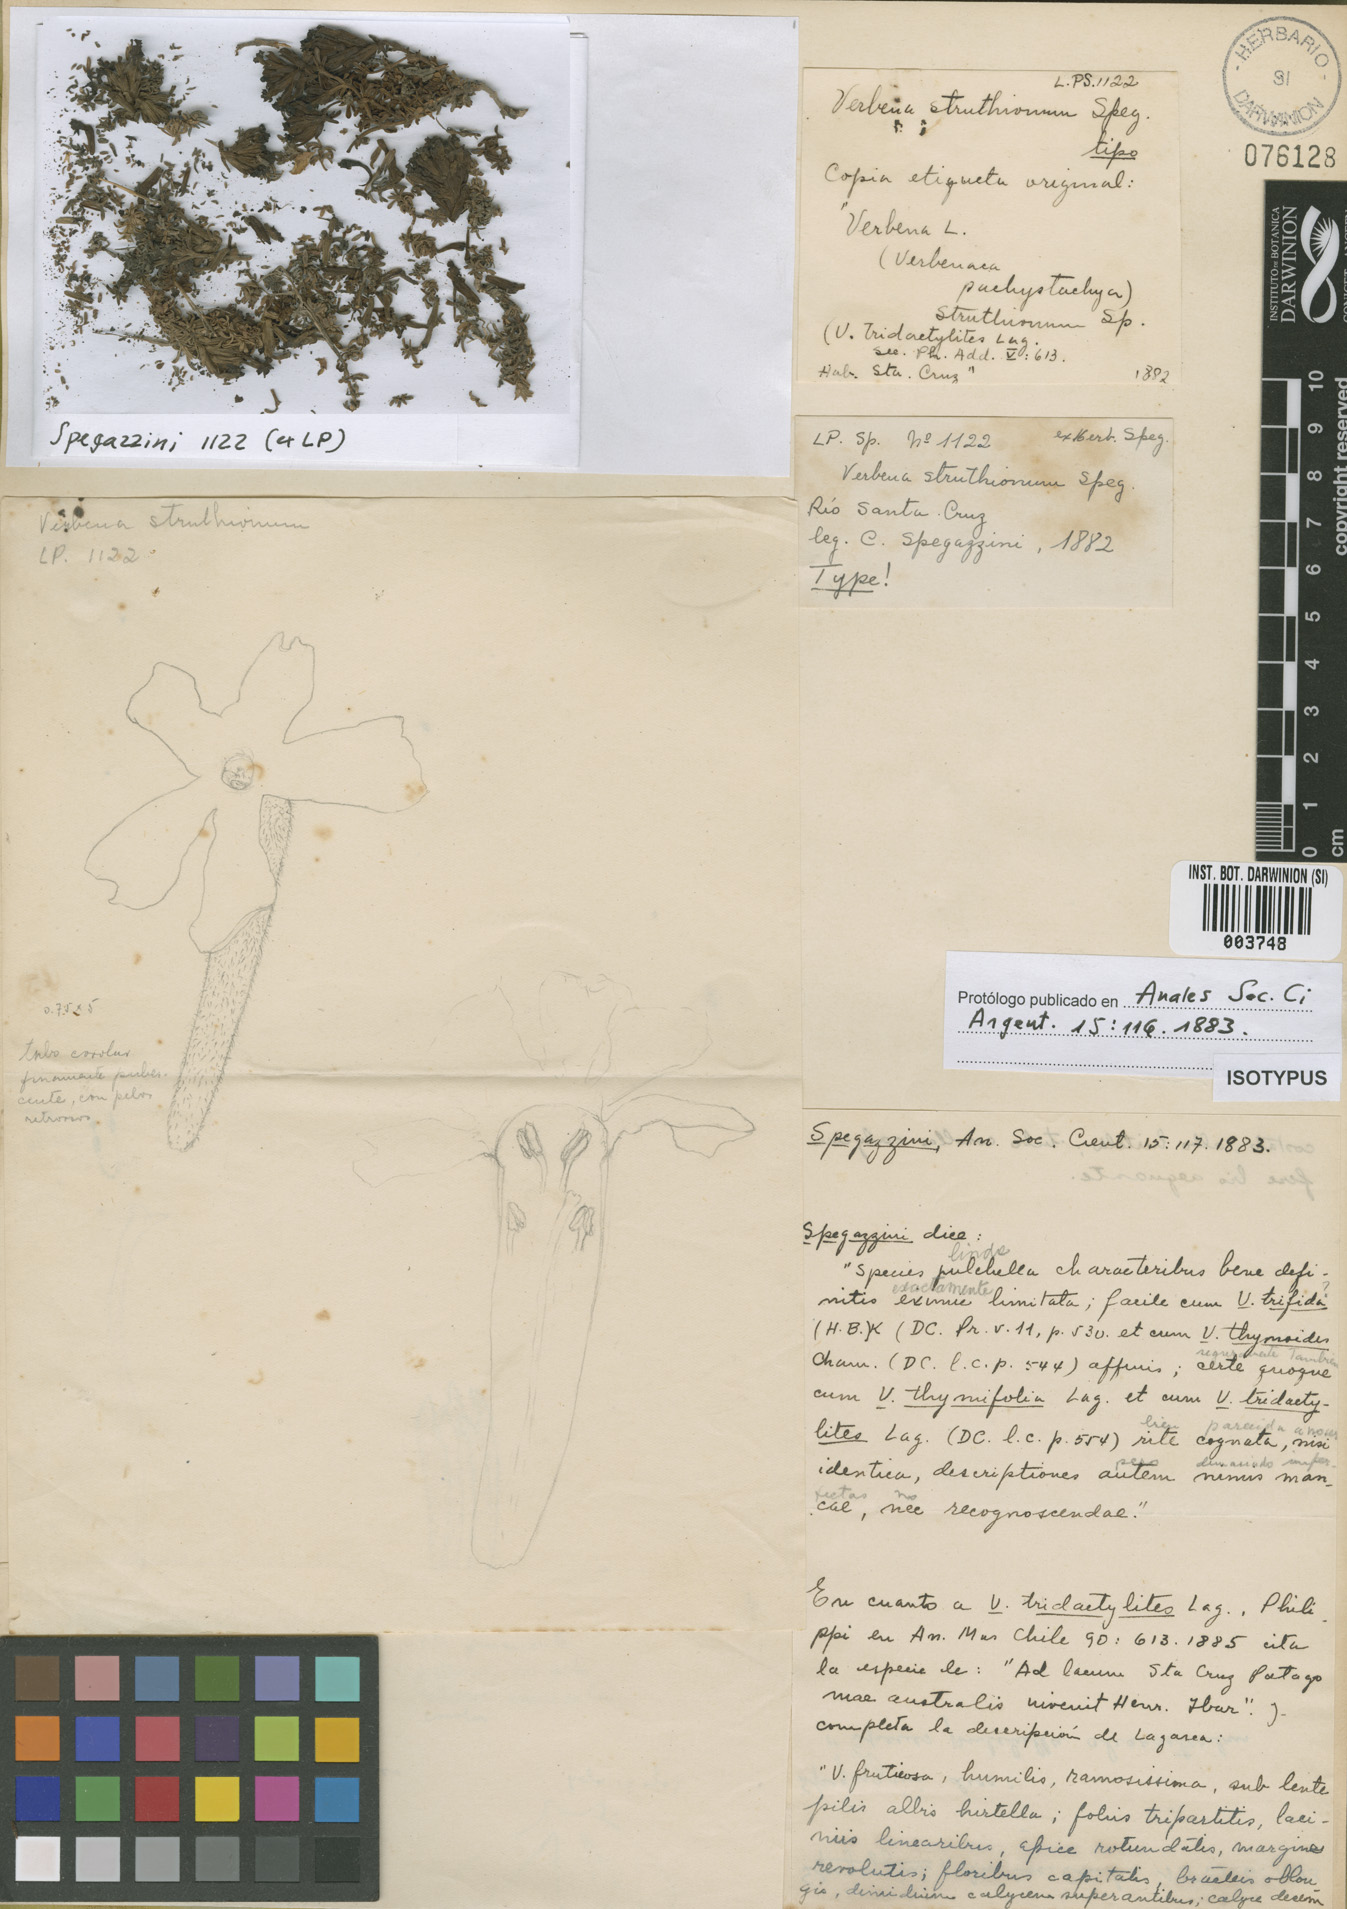 HERBARIO
SI
DARWINION
076128
L.PS.1122
Verbena struthionum Speg.
tipo
Copia etiqueta original:
"Verbena L.
(Verbenaca
pachystachya)
struthionum Sp.
(V. tridactylites Lag.
sec. Ph. Add. V: 613.
Hab. Sta. Cruz"
1882
Spegazzini 1122 (ex LP)
LP. Sp. Nº 1122 ex Herb. Speg.
Verbena struthionum Speg.
Río Santa Cruz
leg. C. Spegazzini, 1882
Type!
Verbena struthionum
LP. 1122
tubo corolar
finamente pubes-
cente, con pelos
retrorsos
INSTITUTO DE BOTANICA
DARWINION
copyright reserved
10
9
8
7
6
5
4
3
2
1
0
cm
INST. BOT. DARWINION (SI)
003748
Protólogo publicado en Anales Soc. Ci
Argent. 15:116. 1883.
ISOTYPUS
Spegazzini, An. Soc. Cient. 15:117. 1883.
Spegazzini dice:
linda
"Species pulchella characteribus bene defi-
exactamente
nitis eximie limitata; facile cum V. trifida
(H.B.)K (DC. Pr. v. 11, p. 530. et cum V. thymoides
seguramente también
Cham. (DC. l.c. p. 544) affinis; certe quoque
cum V. thymifolia Lag. et cum V. tridacty-
bien parecida
lites Lag. (DC. l.c. p. 554) rite cognata, nisi
pero demasiado imper-
identica, descriptiones autem nimis man-
fectas no
cae, nec recognoscendae."
En cuanto a V. tridactylites Lag., Phili
ppi en An. Mus Chile 90: 613. 1885 cita
la especie de: "Ad lacum Sta Cruz Patago
niae australis invenit Henr. Ibar".
completa la descripción de Lagasca:
"V. fruticosa, humilis, ramosissima, sub lente
pilis albis hirtella; foliis tripartitis, laci-
niis linearibus, apice rotundatis, margine
revolutis; floribus capitatis, bracteis oblon-
gis, dimidium calycem superantibus; calyce decem